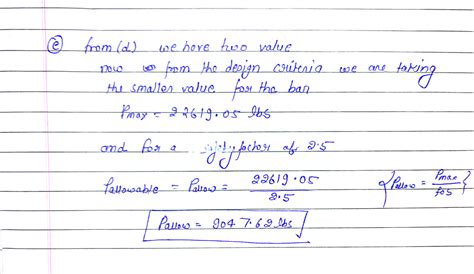 (e) from (d) we have two value
now from the design criteria we are taking
the smaller value for the bar
Pmax = 22619.05 lbs
and for a safety factor of 2.5
Pallowable = Pallow = 22619.05 / 2.5 { Pallow = Pmax / fos }
Pallow = 9047.62 lbs